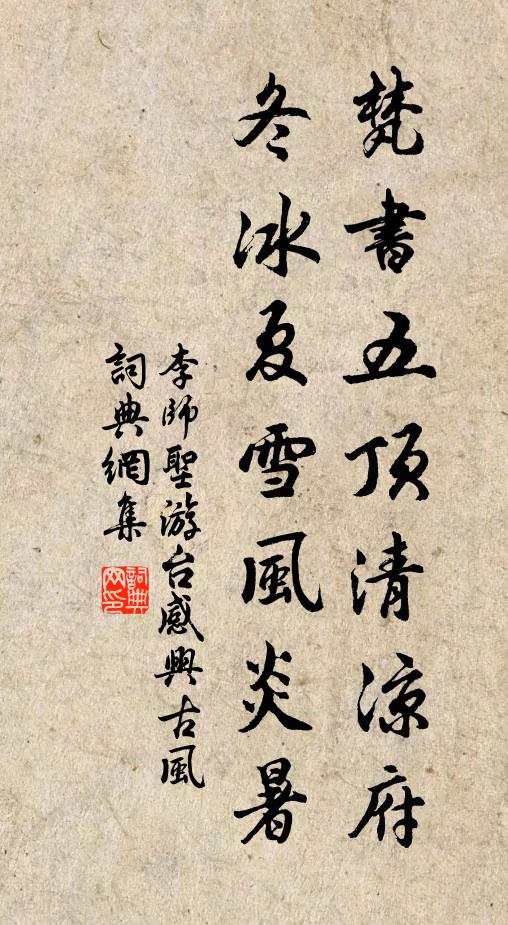 梵書五頂清涼府
冬冰夏雪風炎暑
李師聖游台感興古風
詞典網集
詞典
网印